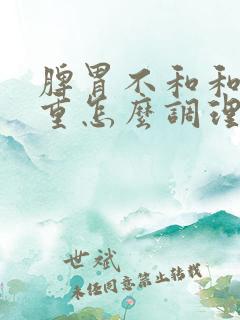 脾胃不和和
重怎麼調理
世斌
未经同意禁止转载